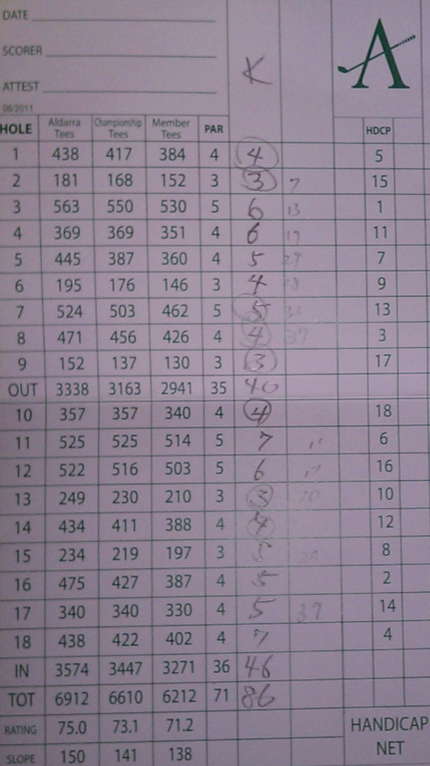 DATE
SCORER
ATTEST
06/2011
K
A
HOLE Aldarra Tees Championship Tees Member Tees PAR HDCP
1 438 417 384 4 4 5
2 181 168 152 3 3 7 15
3 563 550 530 5 6 13 1
4 369 369 351 4 6 19 11
5 445 387 360 4 5 7
6 195 176 146 3 4 28 9
7 524 503 462 5 5 33 13
8 471 456 426 4 4 37 3
9 152 137 130 3 3 17
OUT 3338 3163 2941 35 40
10 357 357 340 4 4 18
11 525 525 514 5 7 11 6
12 522 516 503 5 6 17 16
13 249 230 210 3 3 20 10
14 434 411 388 4 4 12
15 234 219 197 3 5 8
16 475 427 387 4 5 2
17 340 340 330 4 5 39 14
18 438 422 402 4 7 4
IN 3574 3447 3271 36 46
TOT 6912 6610 6212 71 86
RATING 75.0 73.1 71.2 HANDICAP
SLOPE 150 141 138 NET